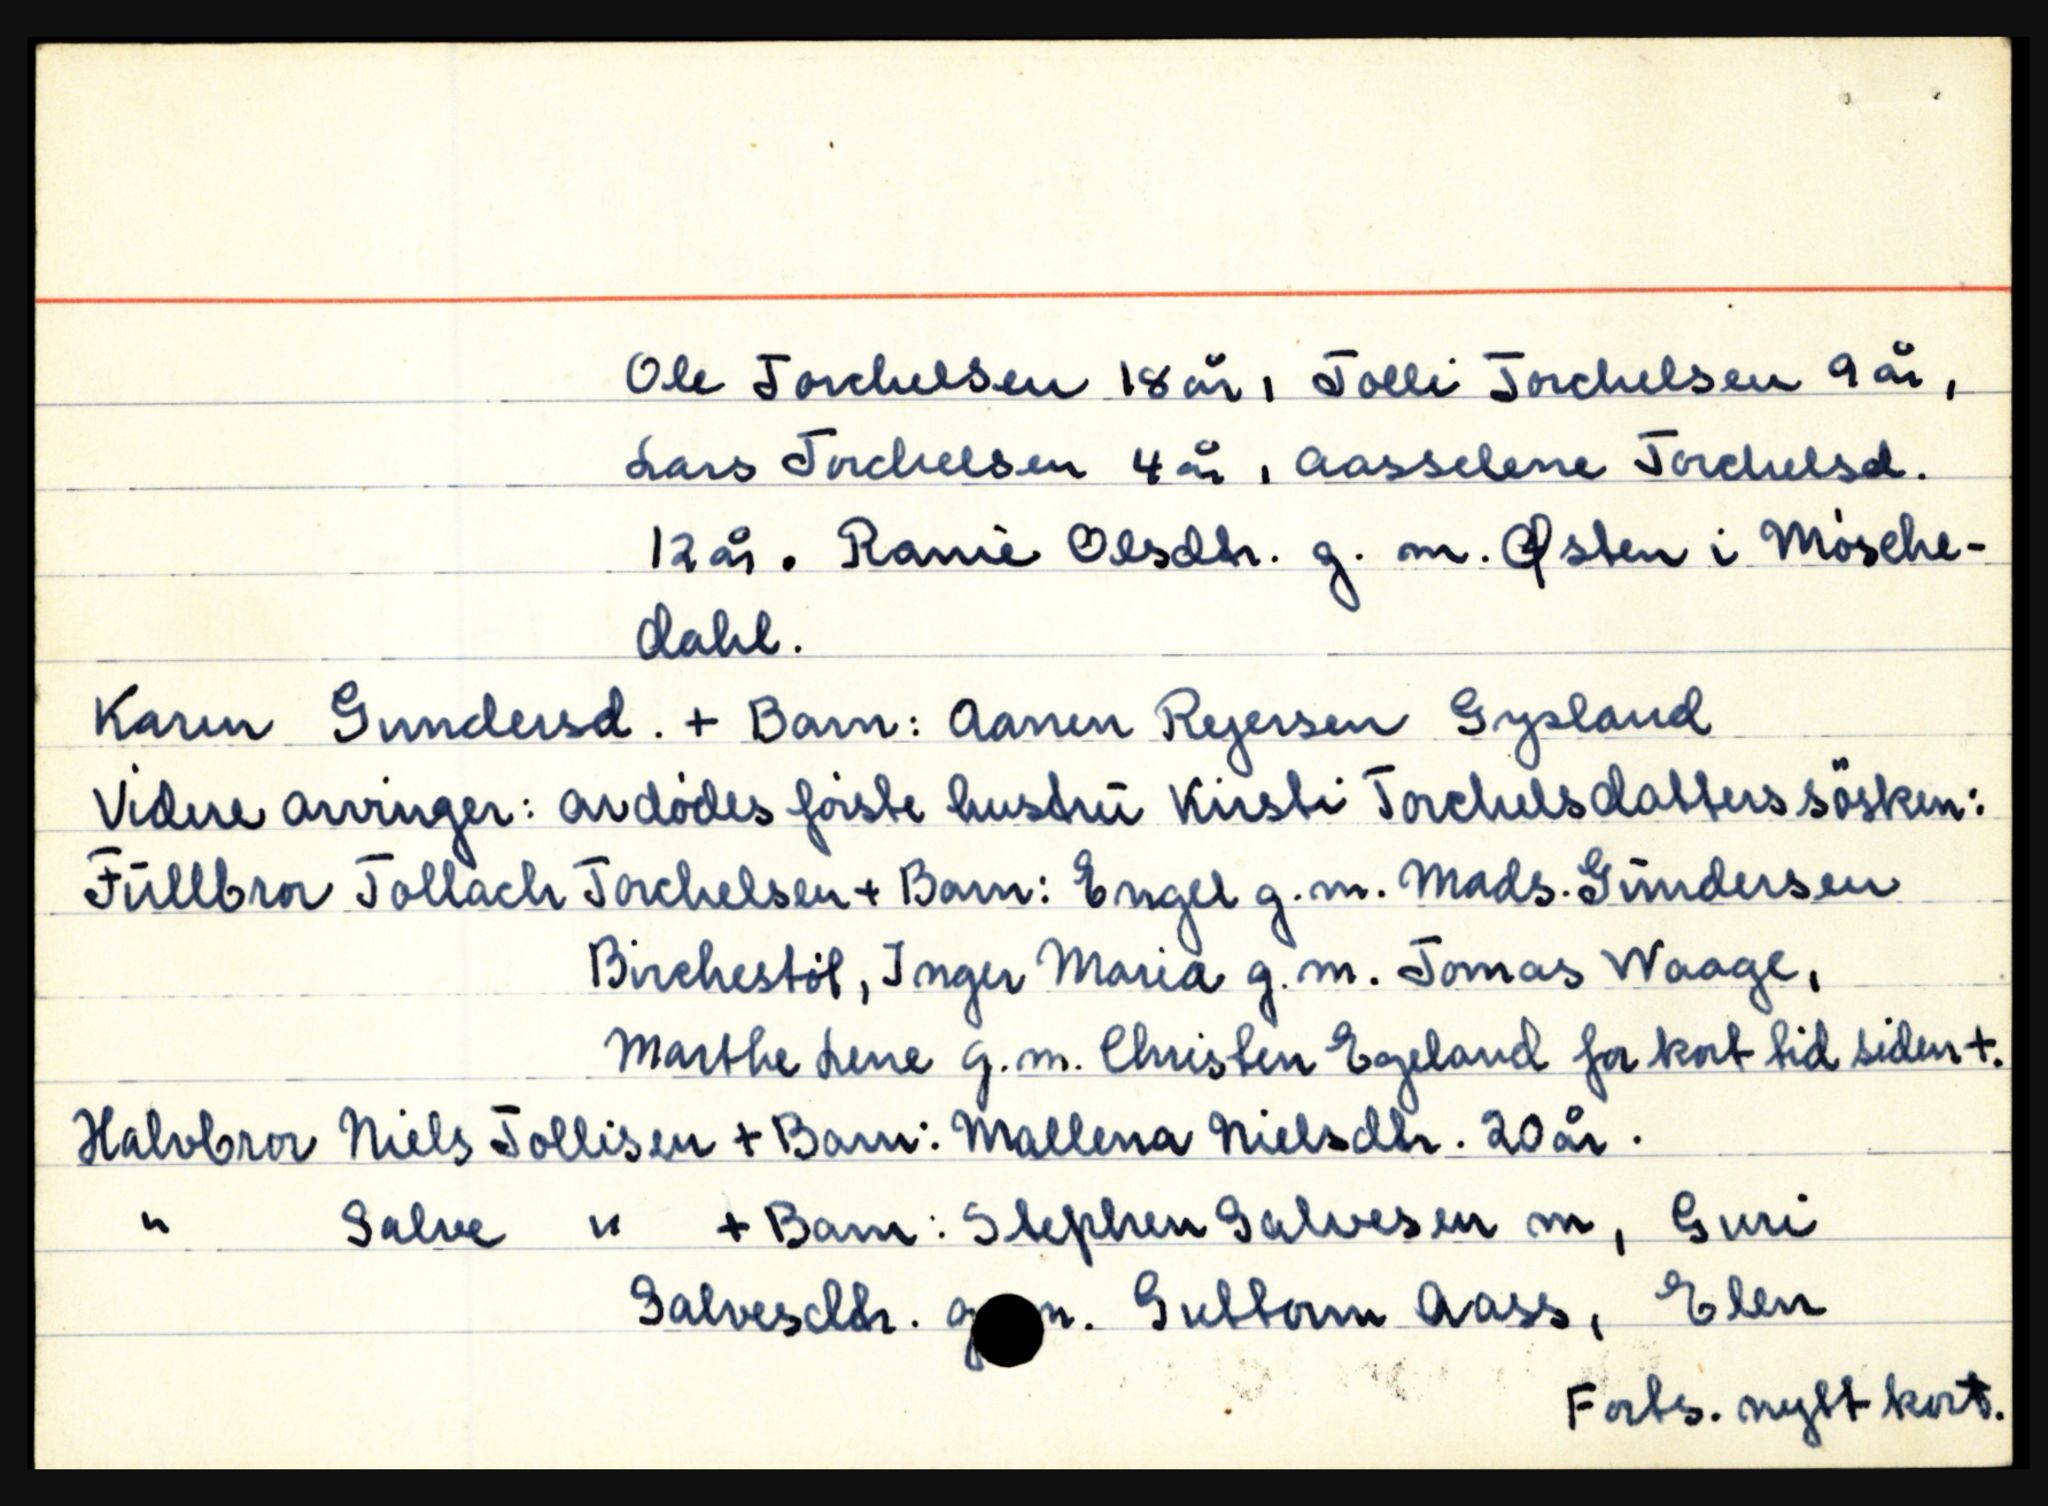 Ole Torchelsen 18 år, Tolli Torchelsen 9 år,
Lars Torchelsen 4 år, Aasselene Torchelsd.
12 år. Ranie Olsdtr. g. m. Østen i Mósche-
dahl.
Karen Gundersd. + Barn: Aanen Reyersen Gysland
Videre arvinger: avdódes fórste hustrü Kirsti Torchelsdatters sösken:
Füllbror Tollach Torchelsen + Barn: Engel g. m. Mads. Gündersen
Birchestól, Inger Maria g. m. Tomas Waage,
Marthe Lene g. m. Christen Egeland for kort tid siden +.
Halvbror Niels Tollisen + Barn: Mallena Nielsdtr. 20 år.
" Salve " + Barn: Stephen Salvesen m, Guri
Salvesdtr. g. m. Guttorm Aass, Elen
Forts. nytt kort.